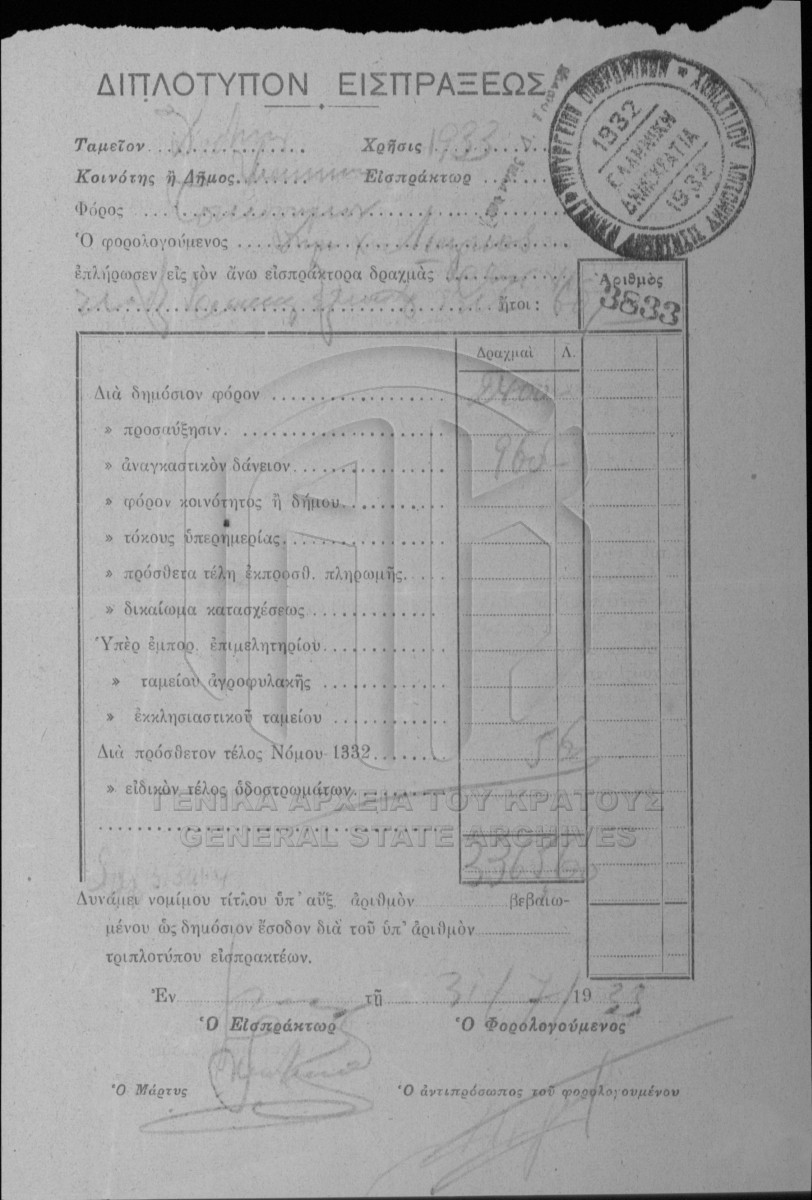 ΔΙΠΛΟΤΥΠΟΝ ΕΙΣΠΡΑΞΕΩΣ
Ταμεῖον
Χρῆσις 1933
Κοινότης ἢ Δῆμος
Εἰσπράκτωρ
Φόρος
Ὁ φορολογούμενος
ἐπλήρωσεν εἰς τὸν ἄνω εἰσπράκτορα δραχμὰς
ἤτοι:
1932
ΕΛΛΗΝΙΚΗ
1932
Ἀριθμὸς
3833
Δραχμαὶ Λ.
Διὰ δημόσιον φόρον 2400
» προσαύξησιν.
» ἀναγκαστικὸν δάνειον 960
» φόρον κοινότητος ἢ δήμου
» τόκους ὑπερημερίας
» πρόσθετα τέλη ἐκπροσθ. πληρωμῆς
» δικαίωμα κατασχέσεως
Ὑπὲρ ἐμπορ. ἐπιμελητηρίου
» ταμείου ἀγροφυλακῆς
» ἐκκλησιαστικοῦ ταμείου
Διὰ πρόσθετον τέλος Νόμου 1332 5 60
» εἰδικὸν τέλος ὁδοστρωμάτων
ΓΕΝΙΚΑ ΑΡΧΕΙΑ ΤΟΥ ΚΡΑΤΟΥΣ
GENERAL STATE ARCHIVES
3365 60
Δυνάμει νομίμου τίτλου ὑπ' αὔξ. ἀριθμὸν βεβαιω-
μένου ὡς δημόσιον ἔσοδον διὰ τοῦ ὑπ' ἀριθμὸν
τριπλοτύπου εἰσπρακτέων.
Ἐν τῇ 31/7/1933
Ὁ Εἰσπράκτωρ
Ὁ Φορολογούμενος
Ὁ Μάρτυς
Ὁ ἀντιπρόσωπος τοῦ φορολογουμένου